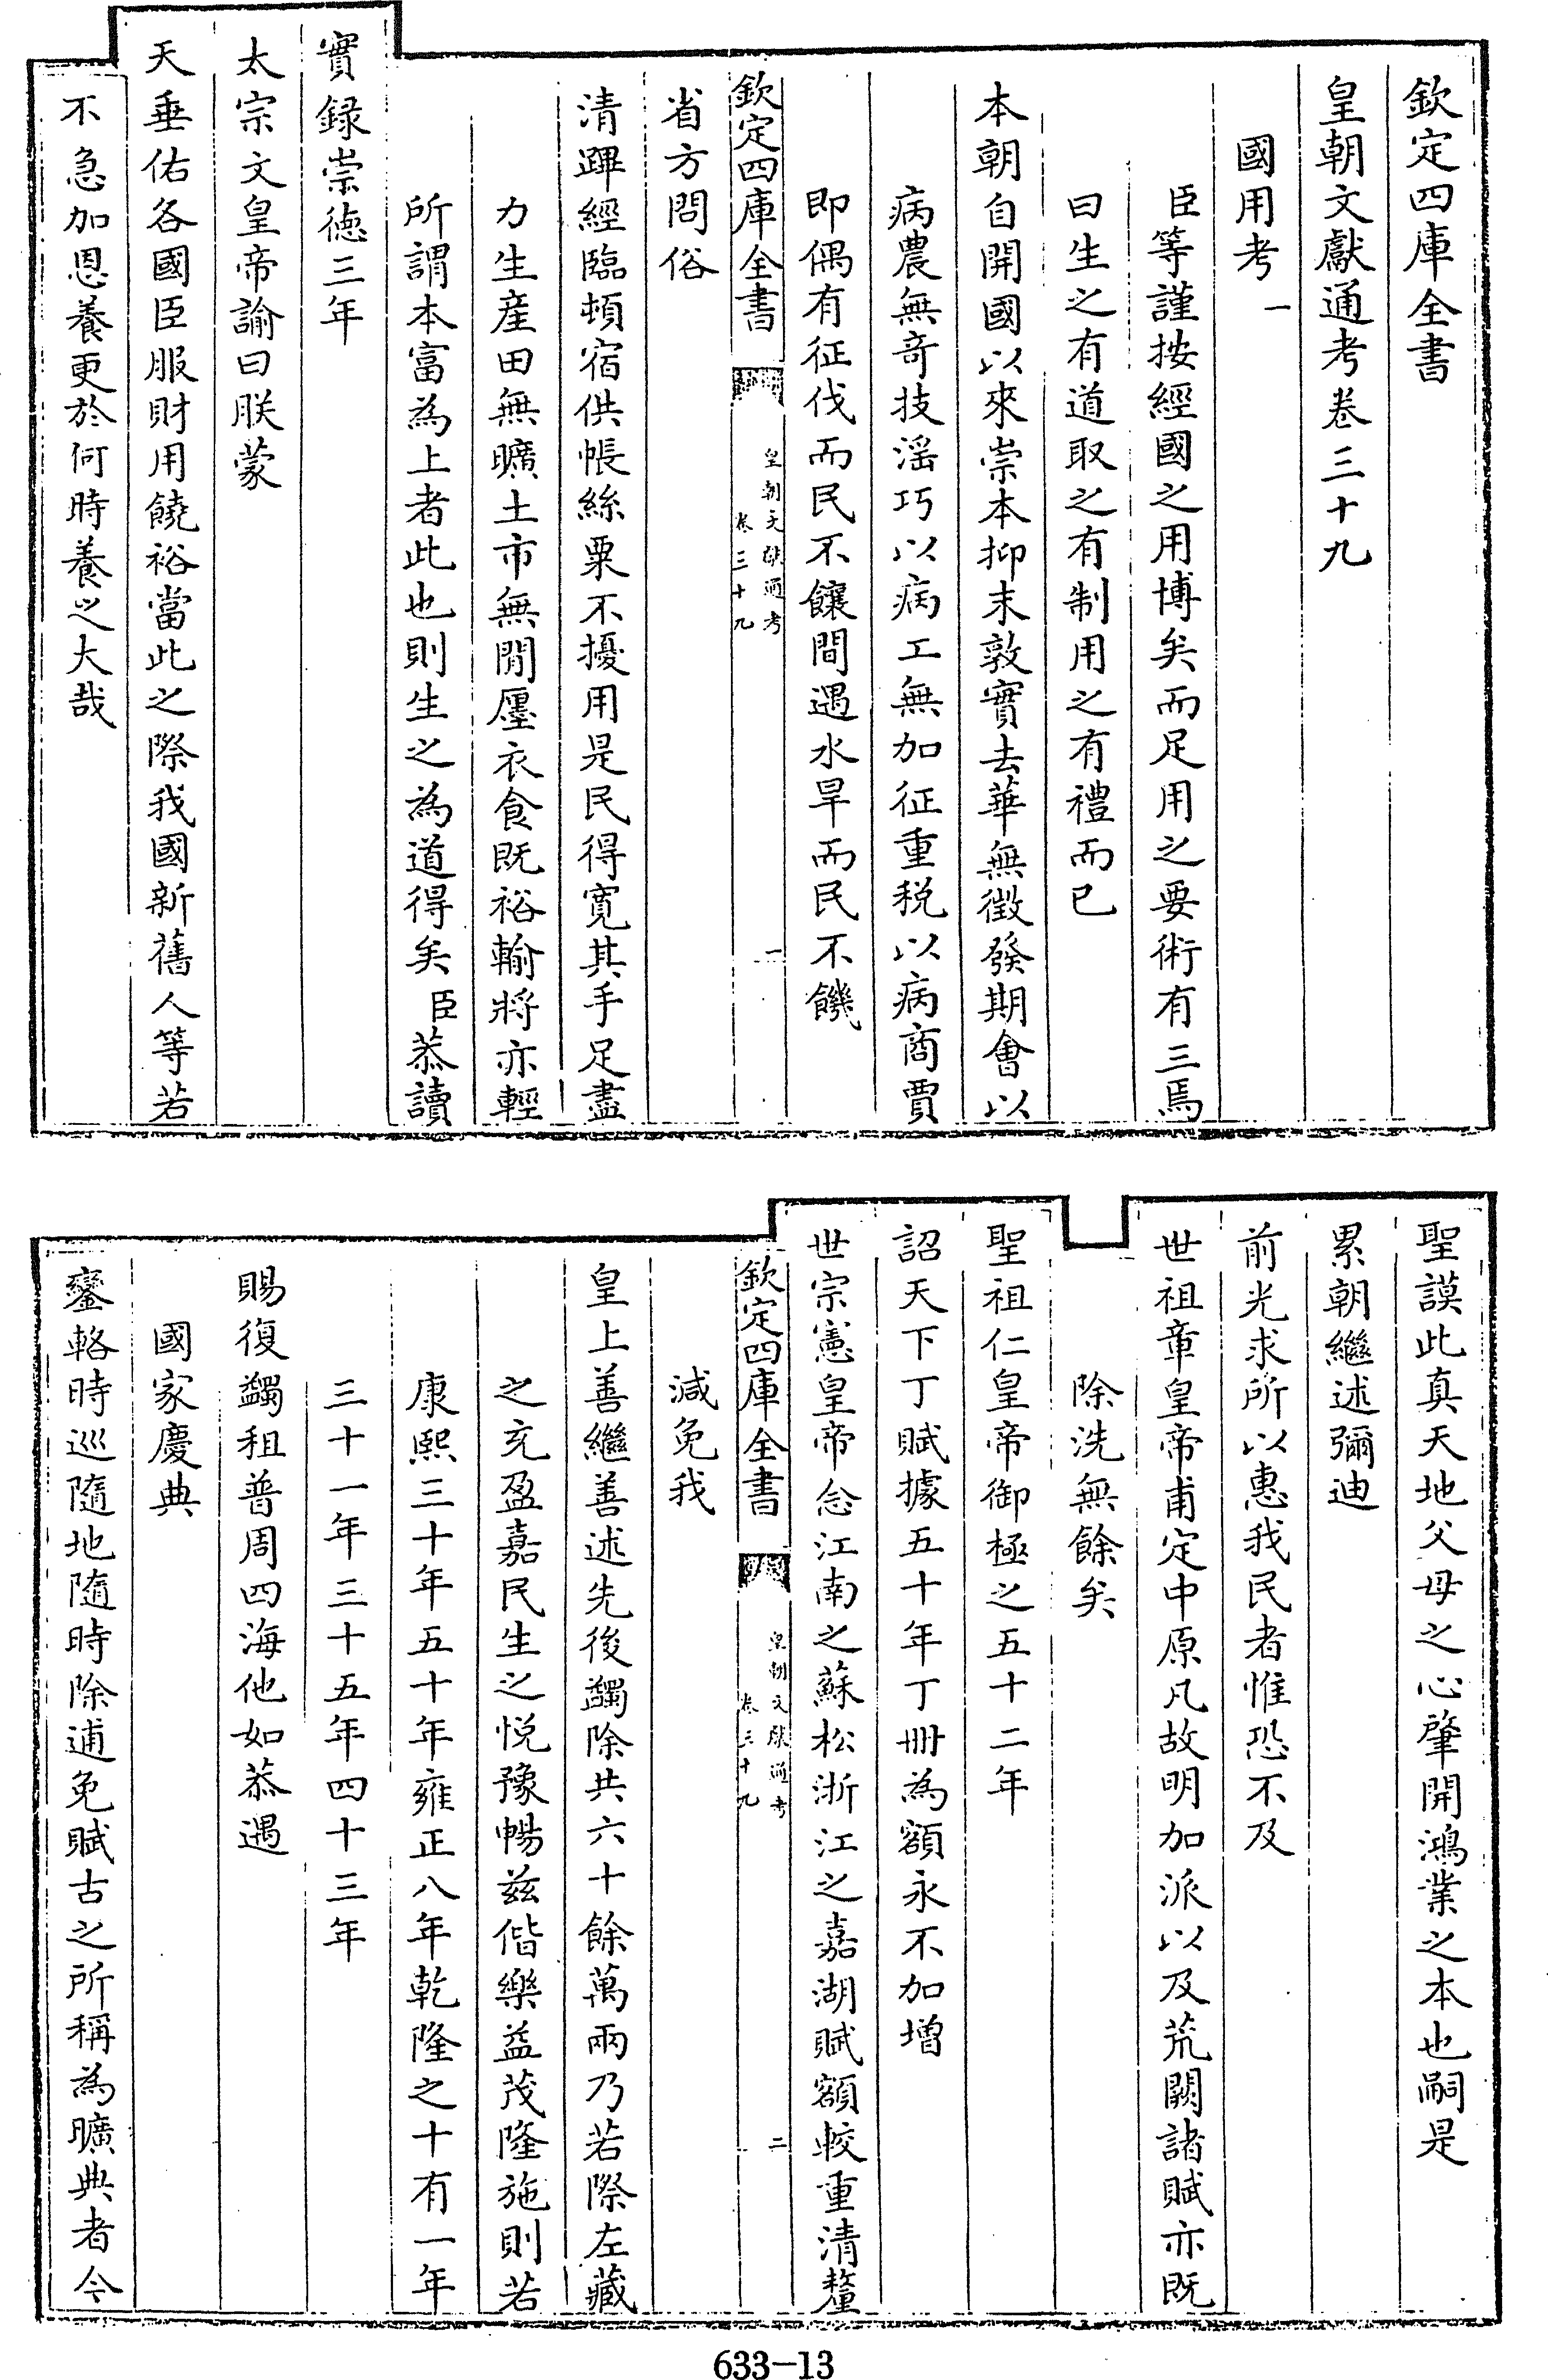 欽定四庫全書
皇朝文獻通考卷三十九
國用考一
臣等謹按經國之用博矣而足用之要術有三焉
曰生之有道取之有制用之有禮而已
本朝自開國以來崇本抑末敦實去華無徵發期會以
病農無竒技滛巧以病工無加征重税以病商賈
即偶有征伐而民不饟間遇水旱而民不饑
欽定四庫全書
皇朝文獻通考
卷三十九
一
省方問俗
清蹕經臨頓宿供帳絲粟不擾用是民得寛其手足盡
力生産田無曠土市無閒㕓衣食既裕輸將亦輕
所謂本富為上者此也則生之為道得矣臣恭讀
實録崇徳三年
太宗文皇帝諭曰朕蒙
天垂佑各國臣服財用饒裕當此之際我國新舊人等若
不急加恩養更於何時養之大哉
聖謨此真天地父母之心肇開鴻業之本也嗣是
累朝繼述彌迪
前光求所以惠我民者惟恐不及
世祖章皇帝甫定中原凡故明加派以及荒闕諸賦亦既
除洗無餘矣
聖祖仁皇帝御極之五十二年
詔天下丁賦據五十年丁冊為額永不加增
世宗憲皇帝念江南之蘇松浙江之嘉湖賦額較重清釐
欽定四庫全書
皇朝文獻通考
卷三十九
二
減免我
皇上善繼善述先後蠲除共六十餘萬兩乃若際左藏
之充盈嘉民生之悦豫暢兹偕樂益茂隆施則若
康熙三十年五十年雍正八年乾隆之十有一年
三十一年三十五年四十三年
賜復蠲租普周四海他如恭遇
國家慶典
鑾輅時巡隨地隨時除逋免賦古之所稱為曠典者今
633-13